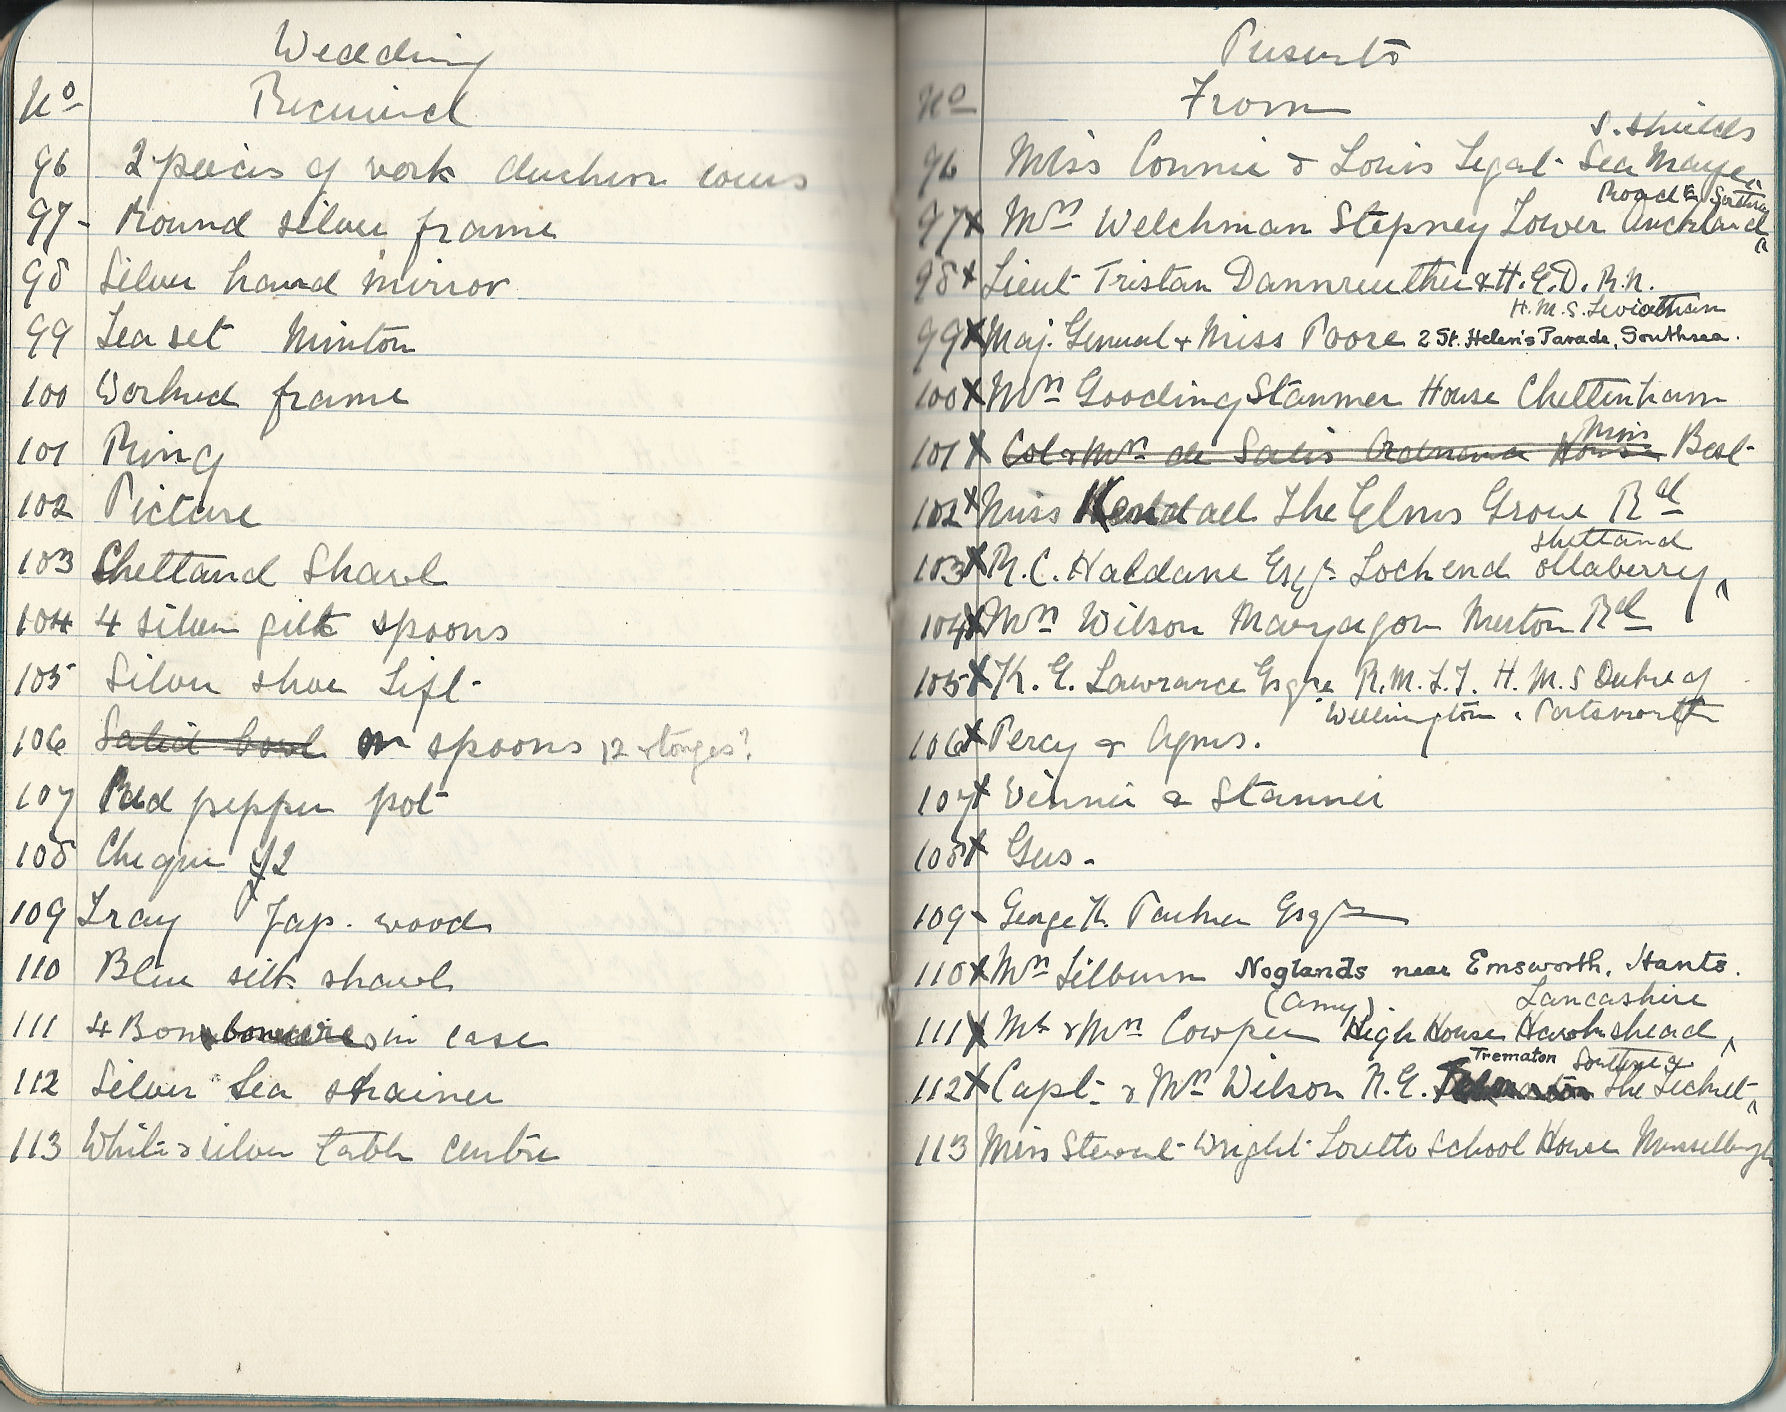 Wedding
No Received
96 2 peices of work cushion covers
97 - Round silver frame
98 Silver hand mirror
99 Tea set Minton
100 Worked frame
101 Ring
102 Picture
103 Shetland Shawl
104 4 silver gilt spoons
105 Silver shoe lift
106 Salid bowl spoons 12 & tongs?
107 Red pepper pot
108 Cheque £2
109 Tray Jap. wood
110 Blue silk shawl
111 4 Bon in case
112 Silver Tea strainer
113 White & silver table centre
Presents
No From
S. Shields
96 Miss Connie & Louis Legat Sea
Road E Southsea
97 x Mrs Welchman Stepney Lower Auckland
98 x Lieut Tristan Dannreuther & H.E.D. R.N.
H.M.S. Leviathan
99 x Maj. General & Miss Poore 2 St. Helen's Parade, Southsea.
100 x Mrs Gooding Stanmer House Cheltenham
Miss
101 x Col & Mrs de Salis Ordnance House Best
102 x Miss Kendall The Elms Grove Rd
Shetland
103 x R.C. Haldane Esqr. Lochend Ollaberry
104 x Mrs Wilson Merton Rd
105 x K. E. Lawrance Esqre R.M.L.I. H.M.S Duke of
Wellington. Portsmouth
106 x Percy & Agnes.
107 x Vinnie & Stannie
108 x Gus.
109 - George K. Esqre
110 x Mrs Lilburn Noglands near Emsworth, Hants.
(Amy). Lancashire
111 x Mr & Mrs Cowper High House Hawkshead
Trematon Southsea
112 x Capt. & Mrs Wilson R.E. The
113 Miss Stewart Wright Loretto School House Musselburgh